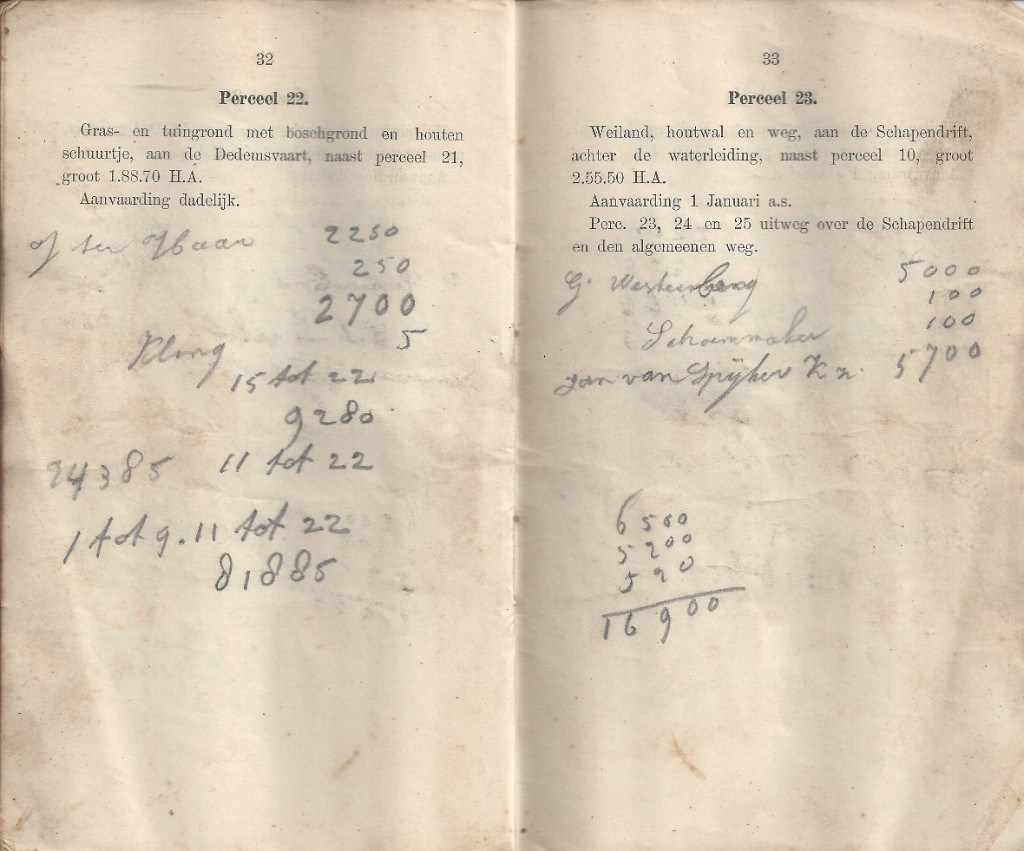 32
Perceel 22.
Gras- en tuingrond met boschgrond en houten
schuurtje, aan de Dedemsvaart, naast perceel 21,
groot 1.88.70 H.A.
Aanvaarding dadelijk.
ter Haar 2250
250
2700
5
15 tot 22
9280
24385 11 tot 22
1 tot 9. 11 tot 22
81885
33
Perceel 23.
Weiland, houtwal en weg, aan de Schapendrift,
achter de waterleiding, naast perceel 10, groot
2.55.50 H.A.
Aanvaarding 1 Januari a.s.
Perc. 23, 24 en 25 uitweg over de Schapendrift
en den algemeenen weg.
G. Westenberg 5000
100
Schoenmaker 100
Jan van Spijker Kz. 5700
6500
5200
16900